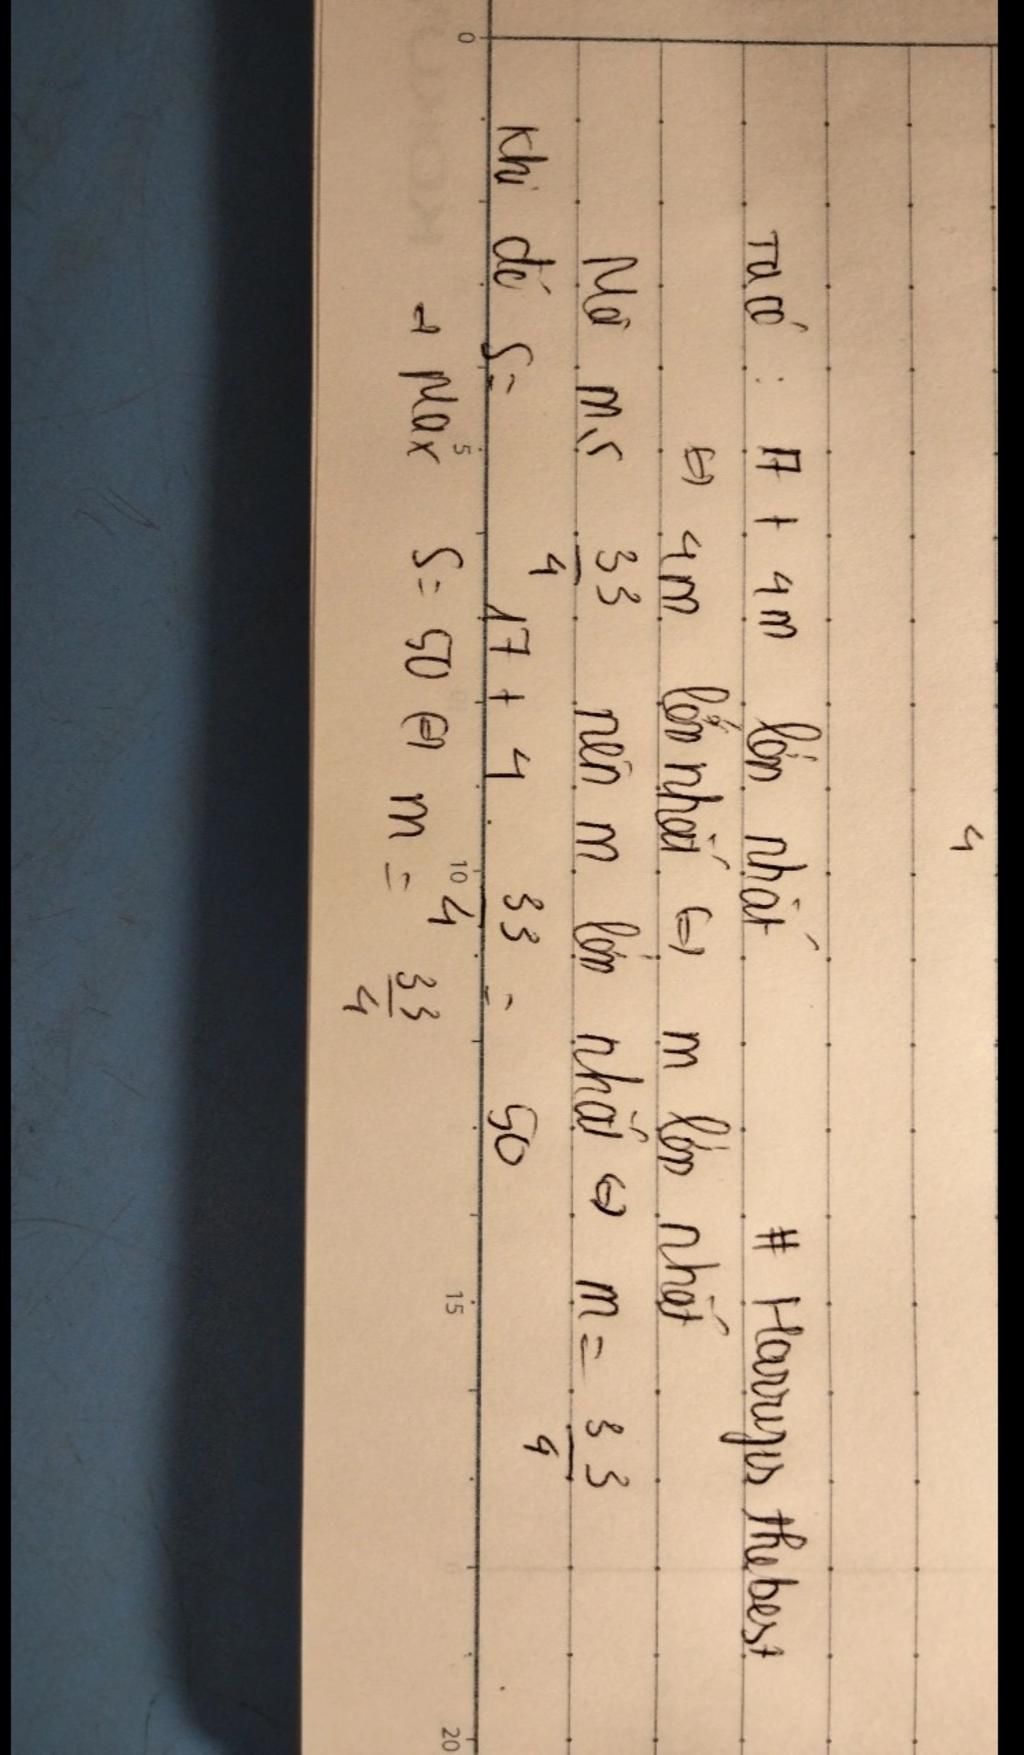 4
Ta có : 17 + 4m lớn nhất # Harryis the best
⇔ 4m lớn nhất ⇔ m lớn nhất
Mà m ≤ 33/4 nên m lớn nhất ⇔ m = 33/4
Khi đó S = 17 + 4 . 33/4 = 50
→ Max S = 50 ⇔ m = 33/4
0 5 10 15 20